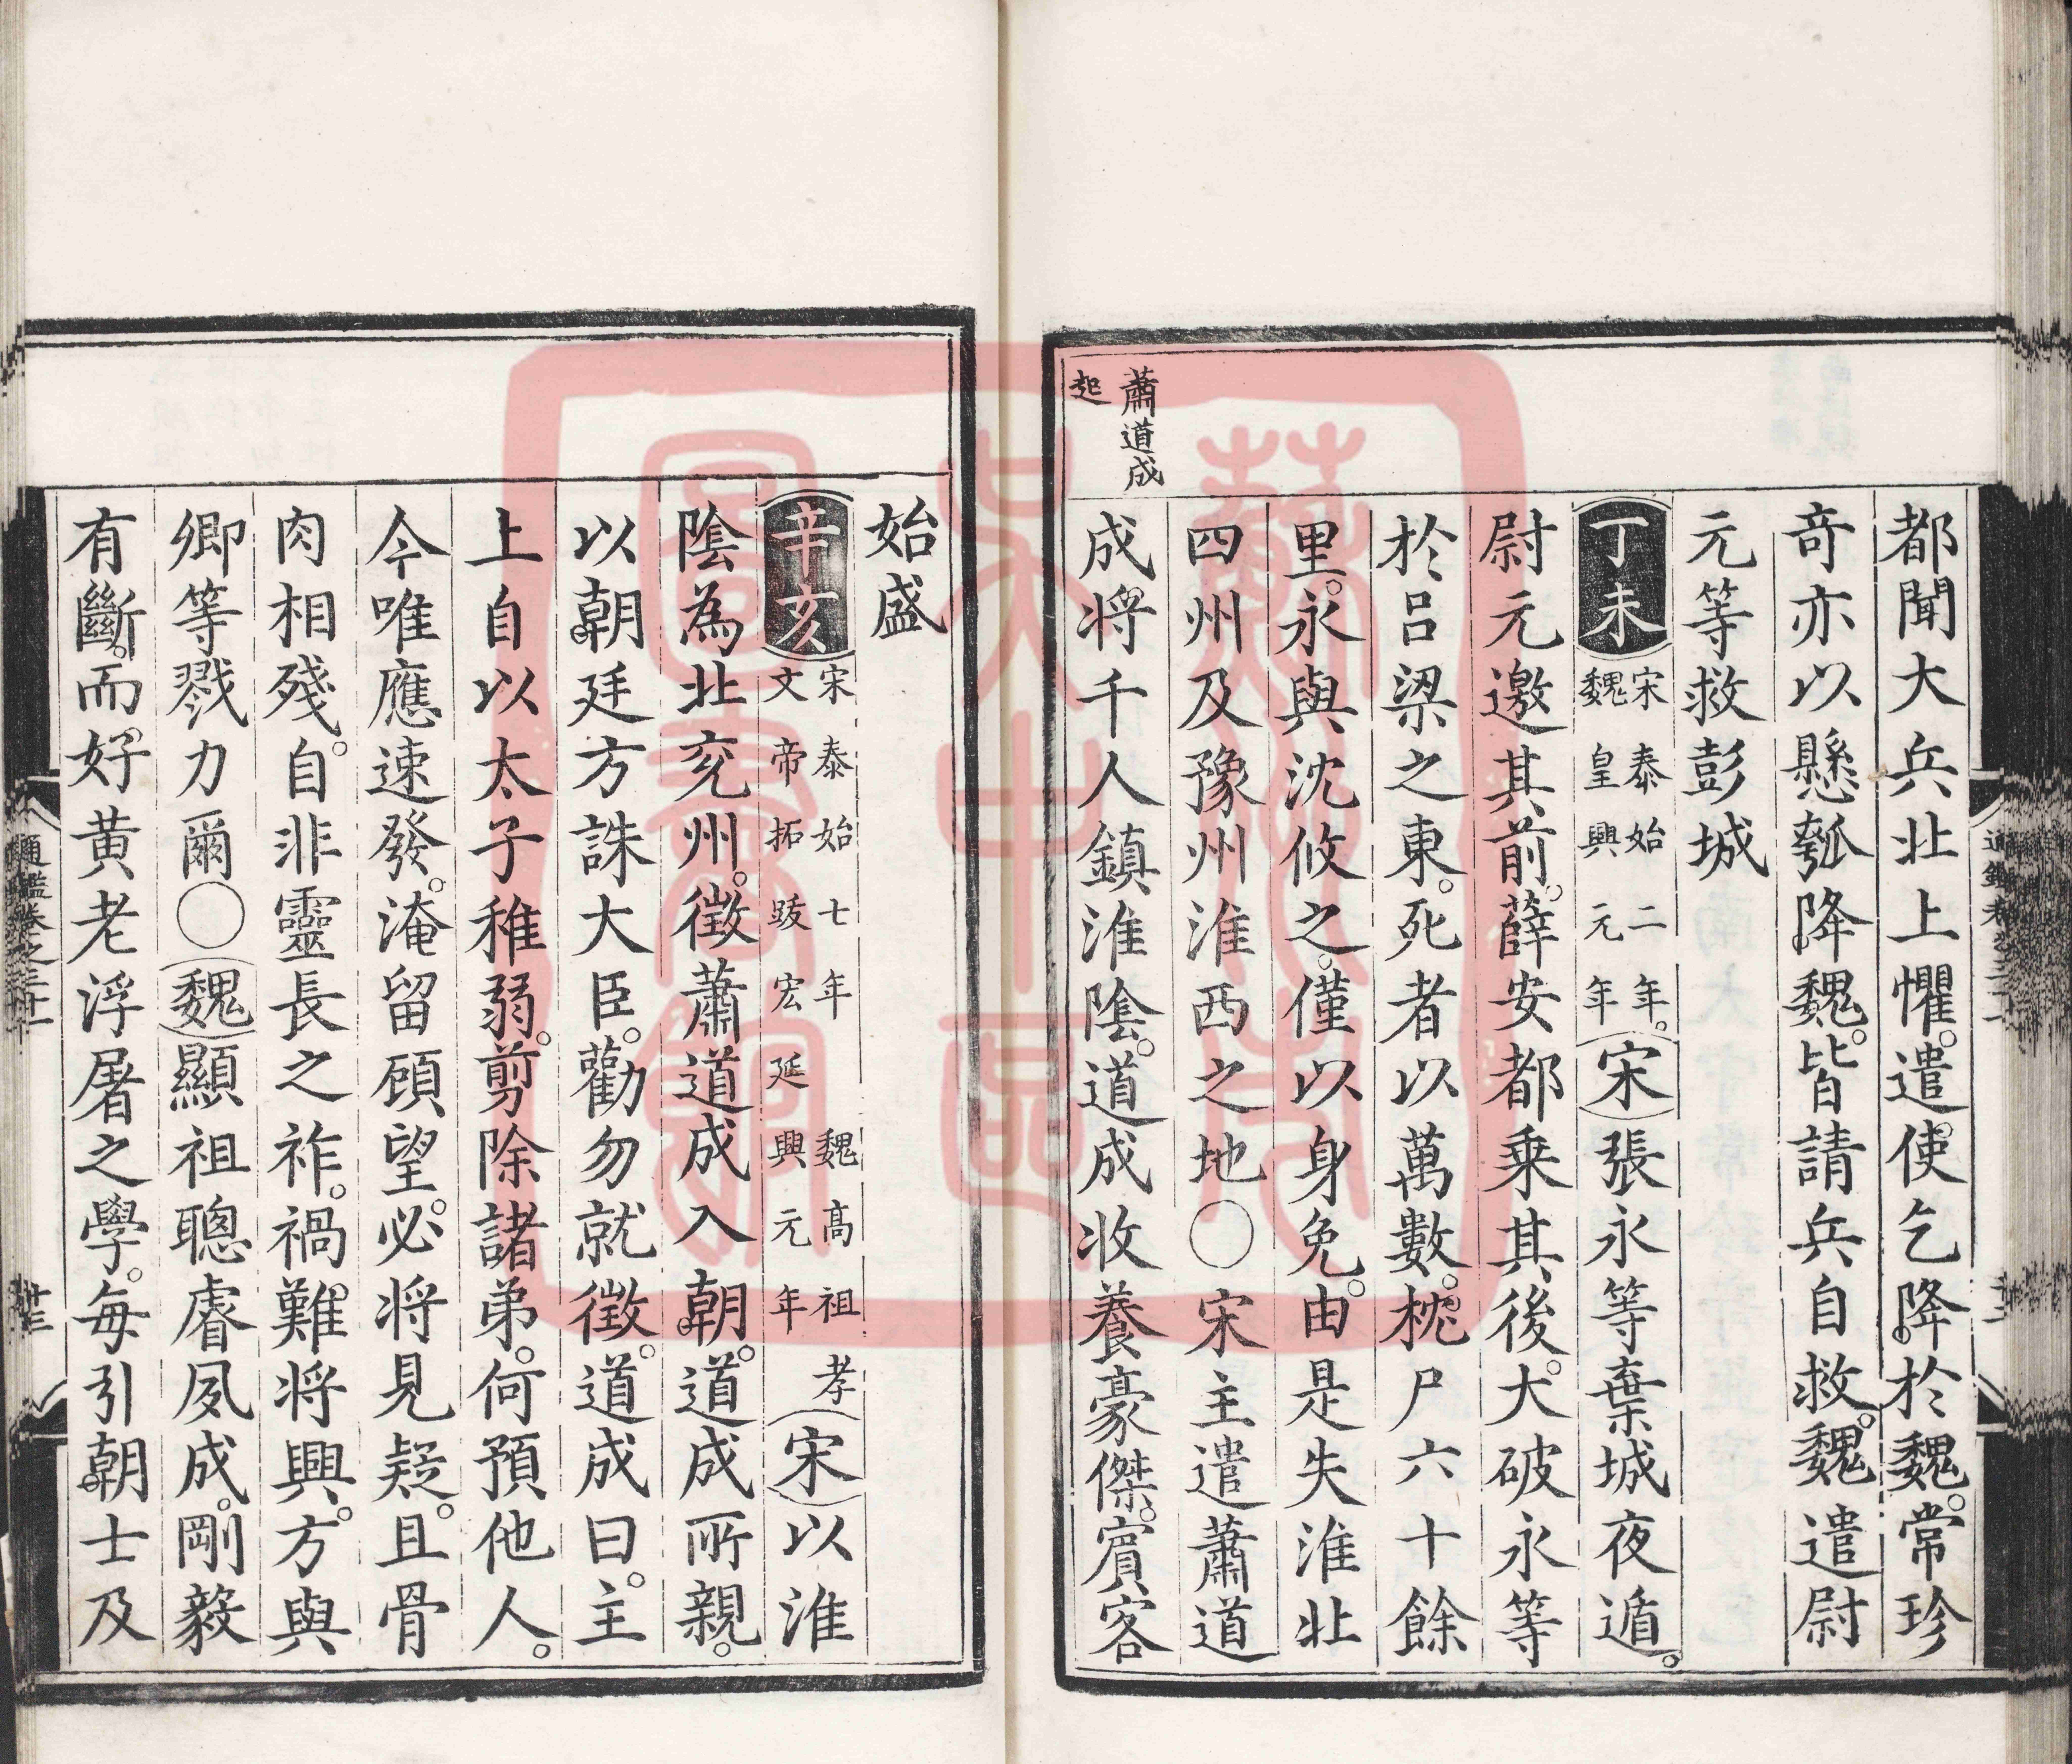 都聞大兵北上懼。遣使乞降於魏。常珍
奇亦以懸瓠降魏。皆請兵自救。魏遣尉
元等救彭城
丁未宋泰始二年。魏皇興元年宋張永等棄城夜遁。
尉元邀其前。薛安都乗其後。大破永等
於吕梁之東。死者以萬數。枕尸六十餘
里。永與沈攸之。僅以身免。由是失淮北
四州及豫州淮西之地〇宋主遣蕭道
成将千人鎮淮陰。道成收養豪傑。賓客
蕭道成
起
始盛
辛亥宋泰始七年魏高祖孝文帝拓跋宏延興元年宋以淮
陰為北兖州。徵蕭道成入朝。道成所親。
以朝廷方誅大臣。勸勿就徵。道成曰。主
上自以太子稚弱。剪除諸弟。何預他人。
今唯應速發。淹留顧望。必将見疑。且骨
肉相殘。自非靈長之祚。禍難将興。方與
卿等戮力爾〇魏顯祖聰睿夙成。剛毅
有斷。而好黄老浮屠之學。每引朝士及
通鑑卷之三十一
十三